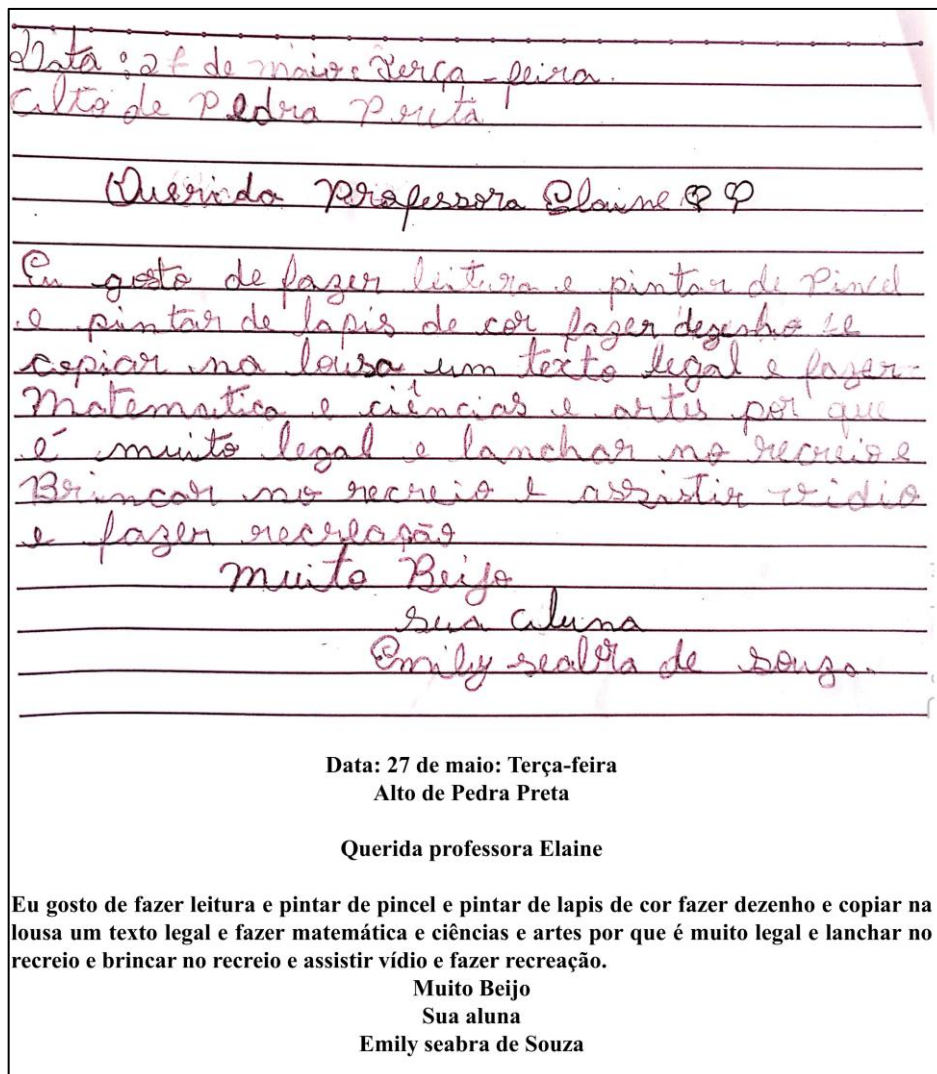 Data: 27 de maio: Terça-feira.
Alto de Pedra Preta
Querida Professora Elaine
Eu gosto de fazer leitura e pintar de Pincel
e pintar de lapis de cor fazer dezenho e
copiar na lousa um texto legal e fazer
Matematica e ciências e artes por que
é muito legal e lanchar no recreio e
Brincar no recreio e assistir vidio
e fazer recreação
Muito Beijo
sua aluna
Emily seabra de Souza.
Data: 27 de maio: Terça-feira
Alto de Pedra Preta
Querida professora Elaine
Eu gosto de fazer leitura e pintar de pincel e pintar de lapis de cor fazer dezenho e copiar na
lousa um texto legal e fazer matemática e ciências e artes por que é muito legal e lanchar no
recreio e brincar no recreio e assistir vídio e fazer recreação.
Muito Beijo
Sua aluna
Emily seabra de Souza